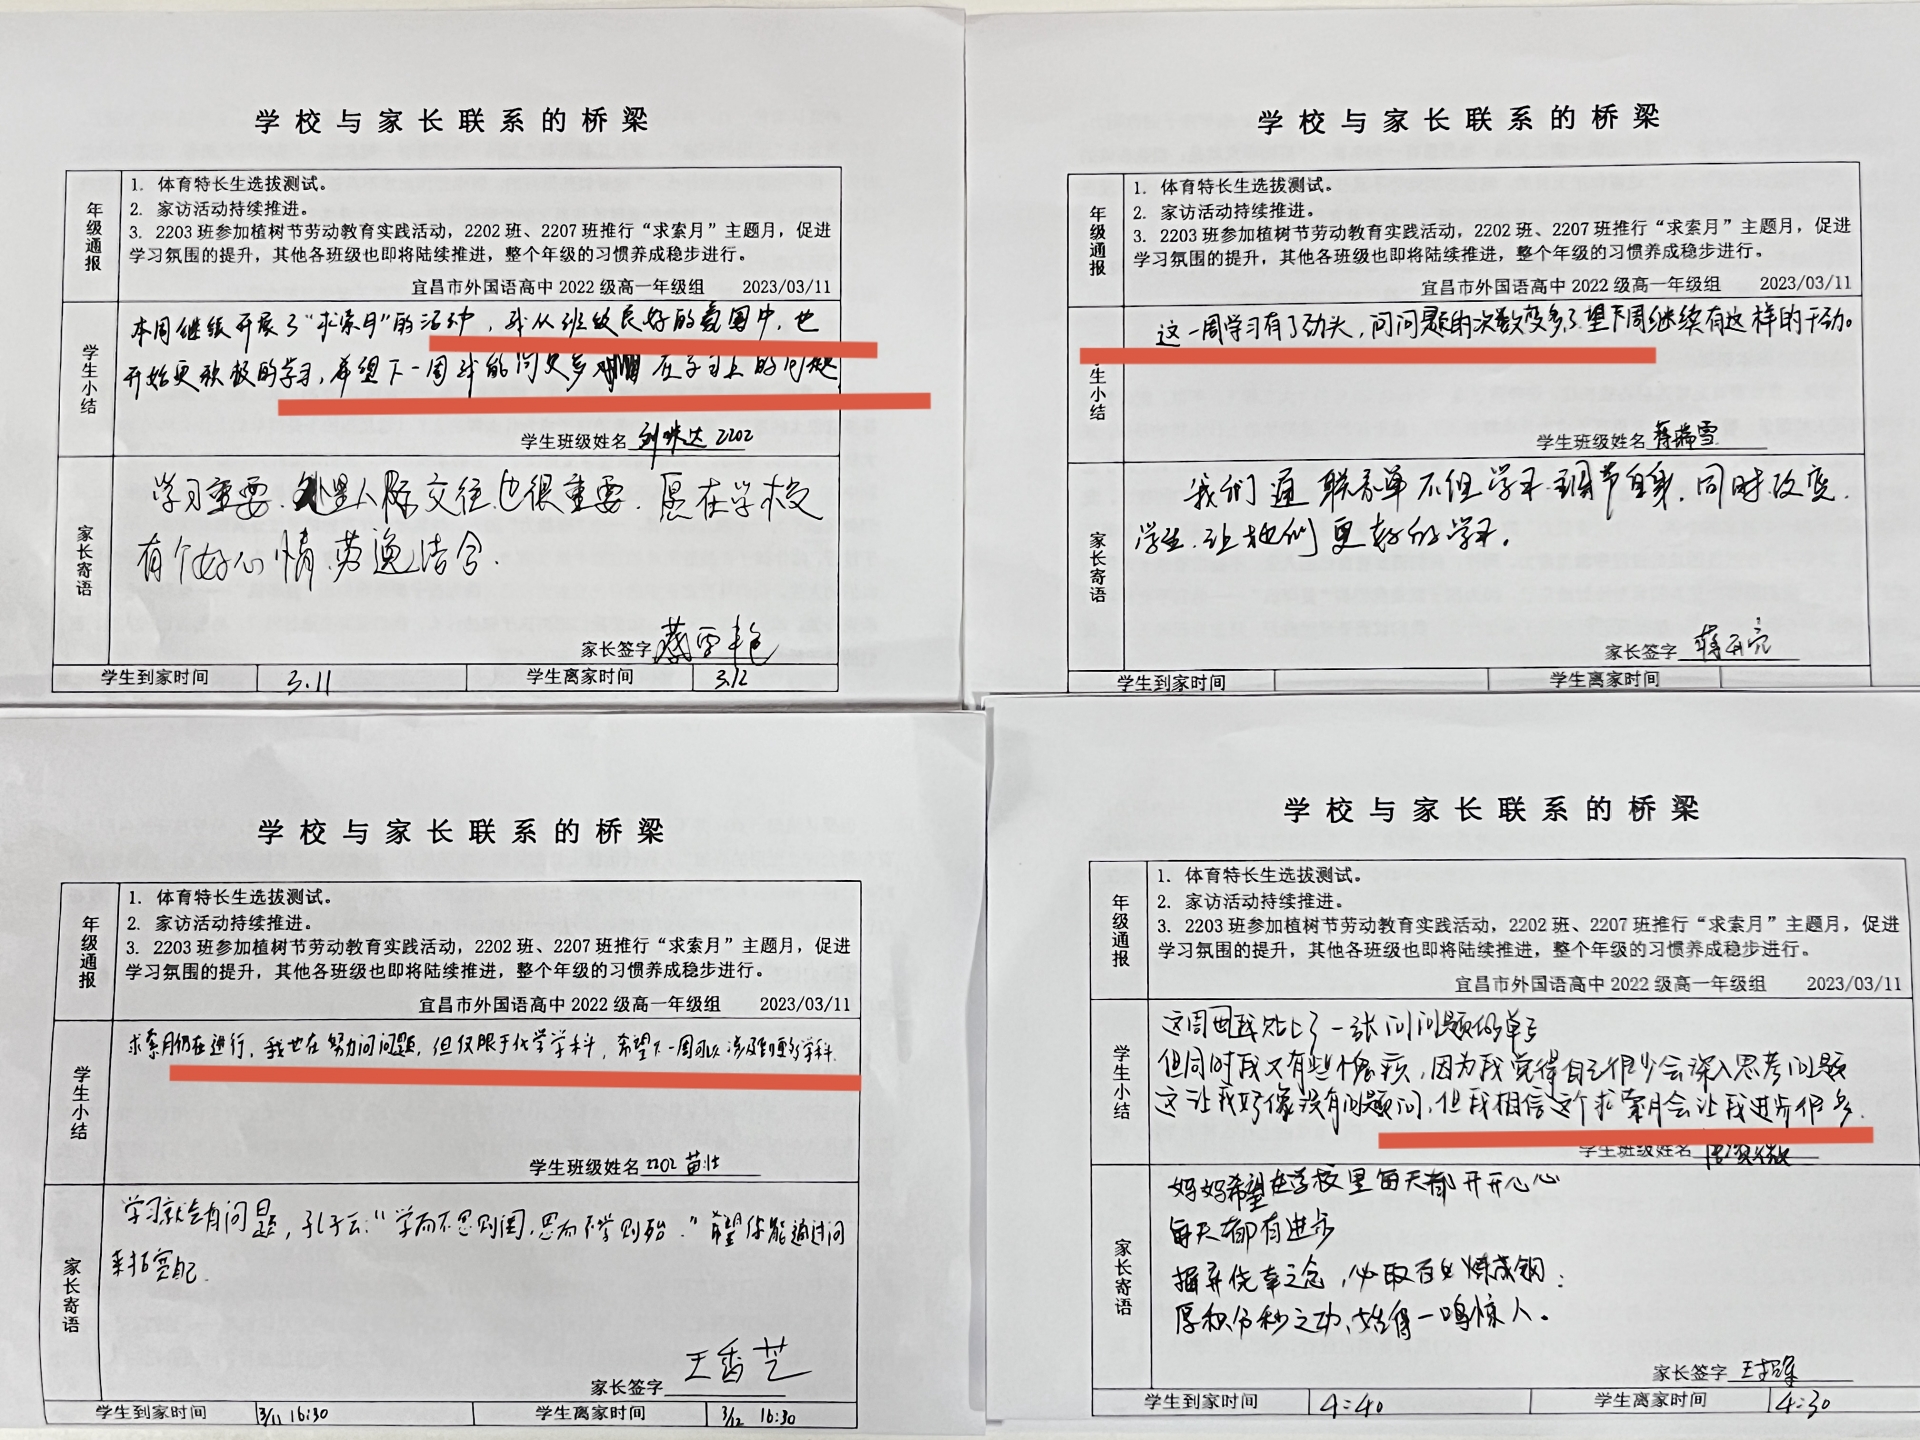 学校与家长联系的桥梁
年级通报
1. 体育特长生选拔测试。
2. 家访活动持续推进。
3. 2203 班参加植树节劳动教育实践活动，2202 班、2207 班推行“求索月”主题月，促进
学习氛围的提升，其他各班级也即将陆续推进，整个年级的习惯养成稳步进行。
宜昌市外国语高中 2022 级高一年级组 2023/03/11
学生小结
本周继续开展了“求索月”的活动，我从班级良好的氛围中，也
开始更积极的学习，希望下一周我能问更多 在学习上的问题
学生班级姓名 2202
家长寄语
学习重要、人际交往也很重要．愿在学校
有个好心情．劳逸结合．
家长签字
学生到家时间 3.11 学生离家时间 3.12
学校与家长联系的桥梁
年级通报
1. 体育特长生选拔测试。
2. 家访活动持续推进。
3. 2203 班参加植树节劳动教育实践活动，2202 班、2207 班推行“求索月”主题月，促进
学习氛围的提升，其他各班级也即将陆续推进，整个年级的习惯养成稳步进行。
宜昌市外国语高中 2022 级高一年级组 2023/03/11
生小结
这一周学习有了劲头，问问题的次数变多了望下周继续有这样的干劲。
学生班级姓名 蒋瑞雪
家长寄语
我们通联系单不但学习调节自身，同时改变．
学生，让他们更好的学习。
家长签字
学生到家时间 学生离家时间
学校与家长联系的桥梁
年级通报
1. 体育特长生选拔测试。
2. 家访活动持续推进。
3. 2203 班参加植树节劳动教育实践活动，2202 班、2207 班推行“求索月”主题月，促进
学习氛围的提升，其他各班级也即将陆续推进，整个年级的习惯养成稳步进行。
宜昌市外国语高中 2022 级高一年级组 2023/03/11
学生小结
求索月仍在进行，我也在努力问问题，但仅限于化学学科，希望下一周可以涉及到更多学科．
学生班级姓名 2202
家长寄语
学习就会有问题，孔子云：“学而不思则罔，思而不学则殆．”希望你能通过问
来拓宽自己．
家长签字 王香芝
学生到家时间 3/11 16:30 学生离家时间 3/12 16:30
学校与家长联系的桥梁
年级通报
1. 体育特长生选拔测试。
2. 家访活动持续推进。
3. 2203 班参加植树节劳动教育实践活动，2202 班、2207 班推行“求索月”主题月，促进
学习氛围的提升，其他各班级也即将陆续推进，整个年级的习惯养成稳步进行。
宜昌市外国语高中 2022 级高一年级组 2023/03/11
学生小结
这周我贴上了一张问问题的单子
但同时我又有些愧疚，因为我觉得自己很少会深入思考问题
这让我好像没有问题问，但我相信这个求索月会让我进步很多．
学生班级姓名
家长寄语
妈妈希望在学校里每天都开开心心
每天都有进步
摒弃侥幸之念，必取百炼成钢；
厚积分秒之功，始得一鸣惊人。
家长签字
学生到家时间 4:40 学生离家时间 4:30